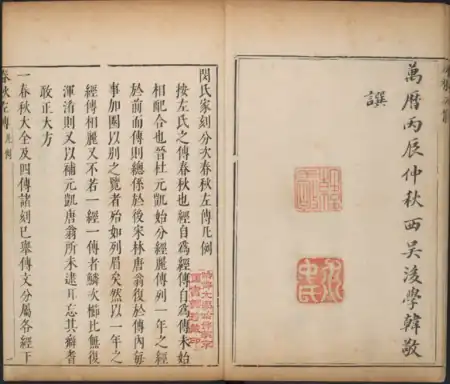 萬曆丙辰仲秋西吳後學韓敬
譔
閔氏家刻分次春秋左傳凡例
按左氏之傳春秋也經自爲經傳自爲傳未始
相配合也晉杜元凱始分經麗傳列一年之經
於前而傳則總係於後宋林唐翁復於傳內每
事加圈以別之覽者殆如列眉矣然以一年之
經傳相麗又不若一經一傳者鱗次櫛比無復
渾淆則又以補元凱唐翁所未逮耳忘其癖者
敢正大方
一春秋大全及四傳諸刻已舉傳文分屬各經下
春秋左傳 凡例 一